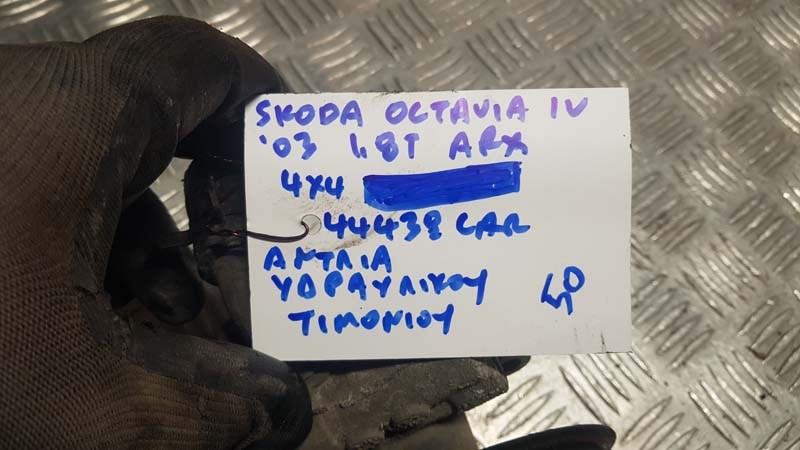 SKODA OCTAVIA IV
'03 1.8T ARX
4X4
44438 CAR
ΑΝΤΛΙΑ
ΥΔΡΑΥΛΙΚΟΥ
ΤΙΜΟΝΙΟΥ
50